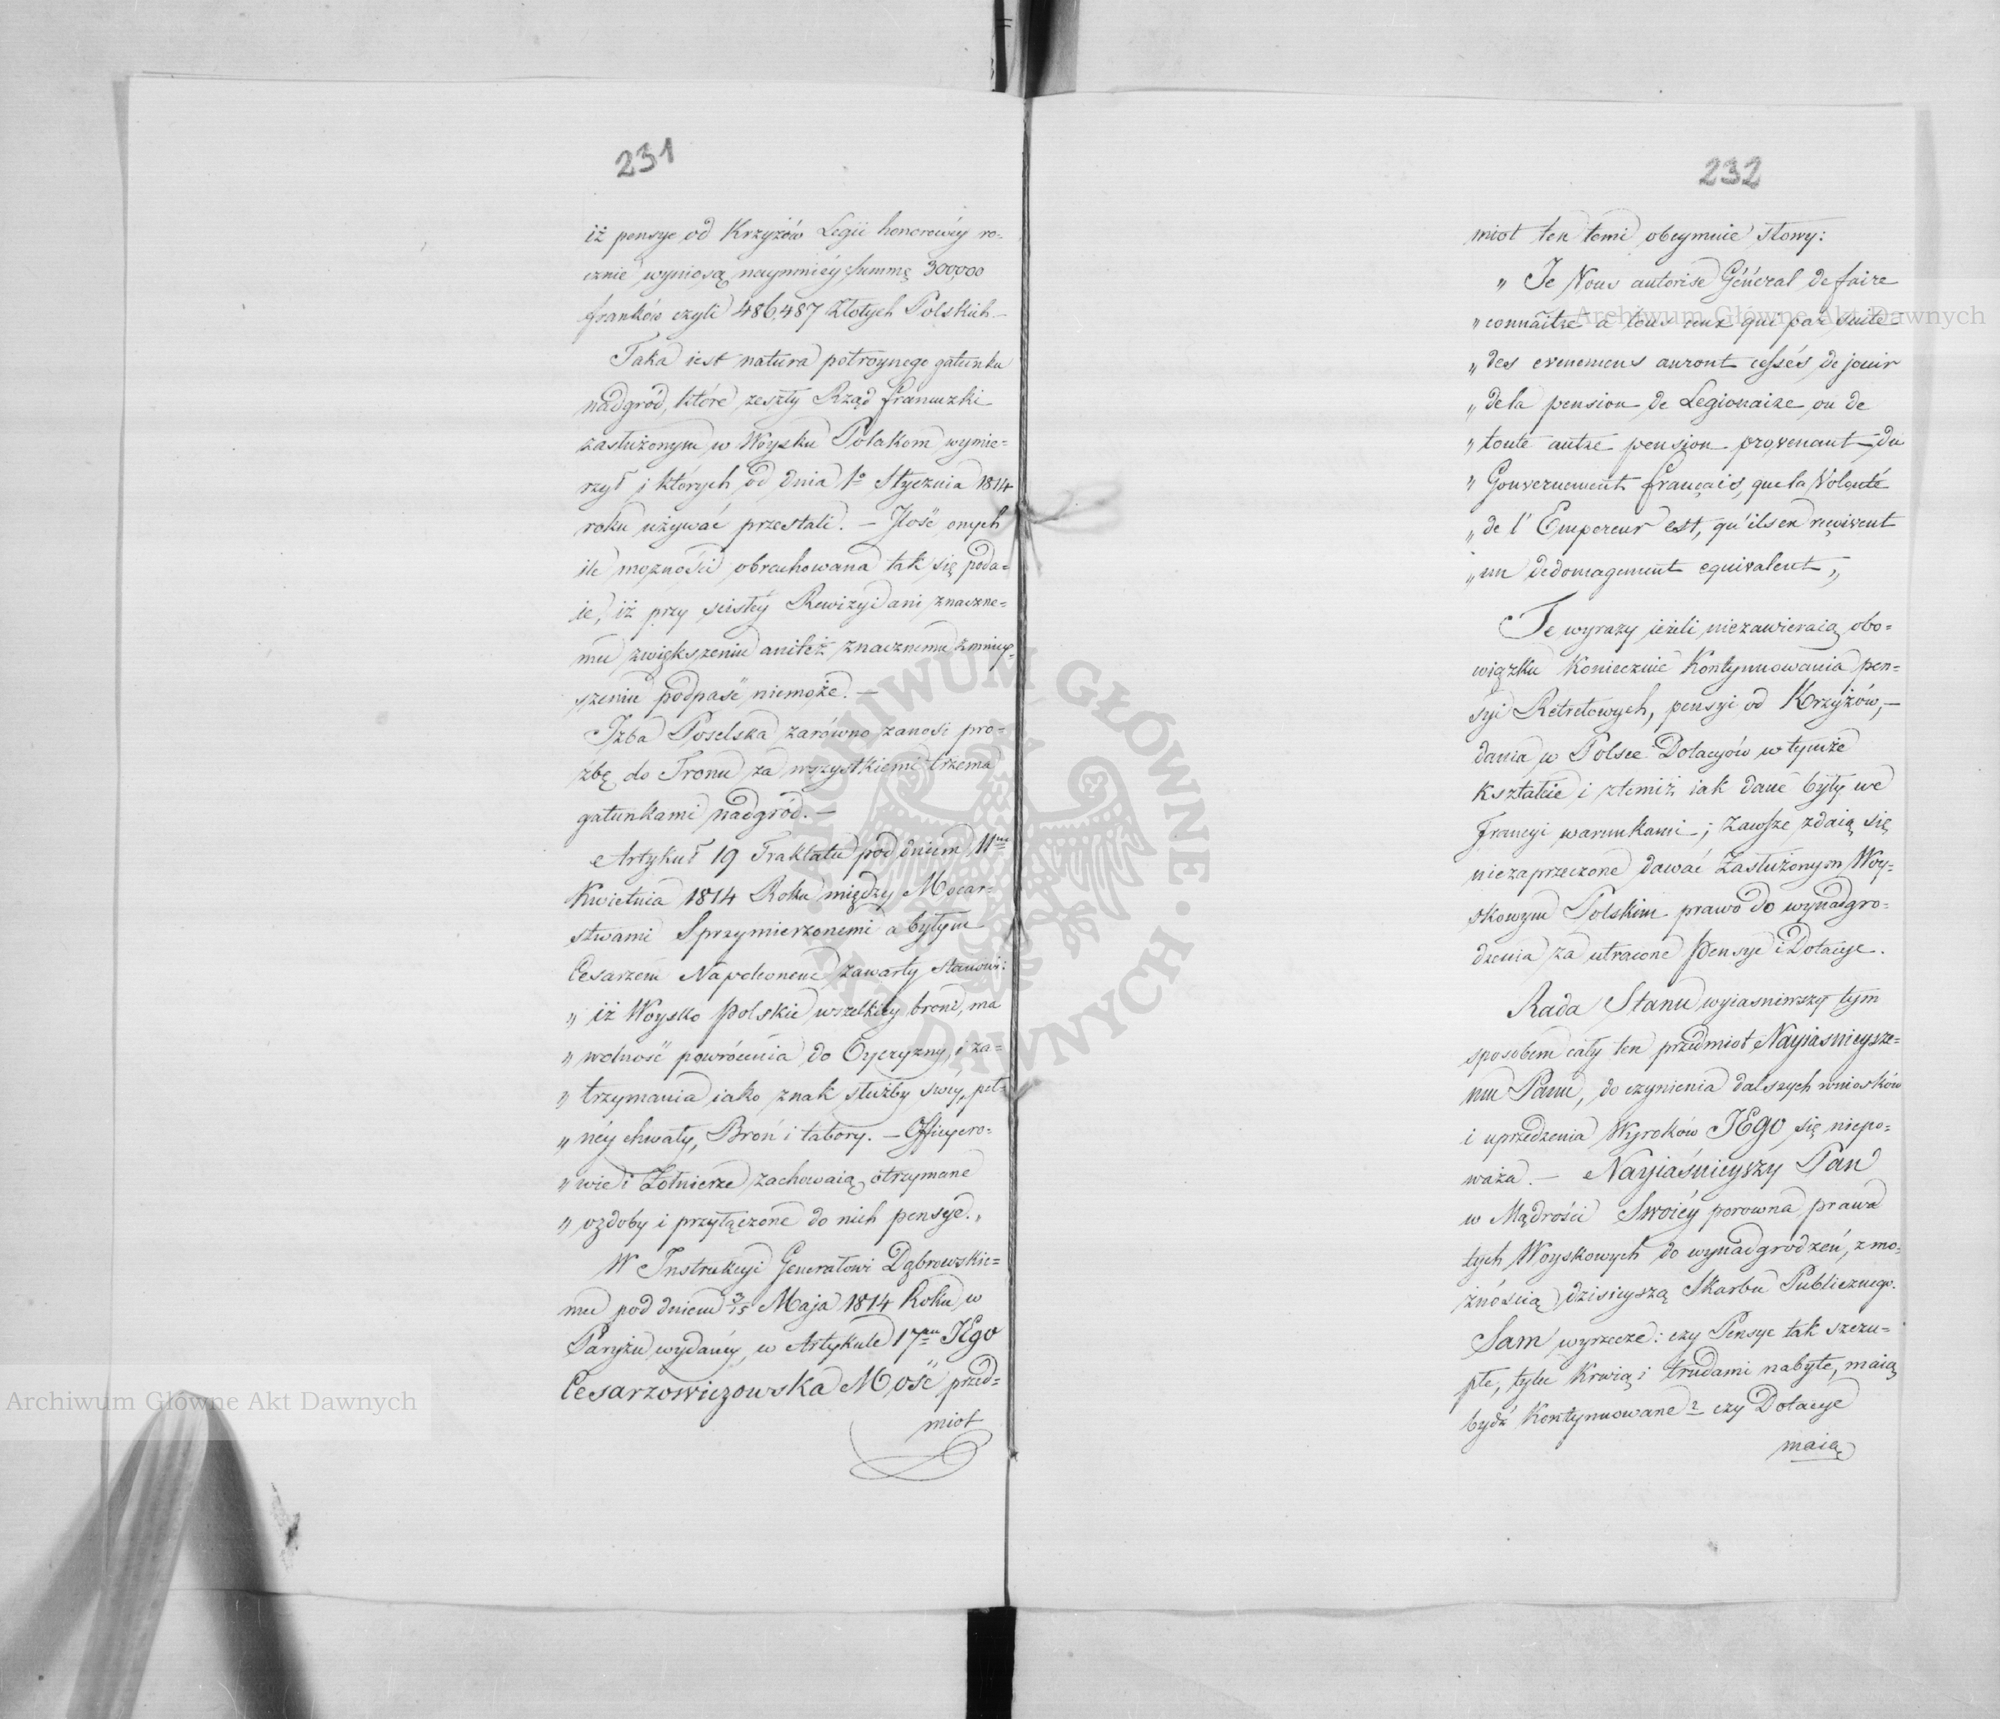 231
iż pensye od Krzyżów Legii honorowéy ro-
cznie wynoszą naymniéy summę 300,000
franków czyli 486,487 Złotych Polskich
Taka iest natura potróynego gatunku
nadgród, które zeszły Rząd francuzki
zasłużonym w Woysku Polakom wymie-
rzył i których od dnia 1o Stycznia 1814
roku używać przestali. — Ilość onych
ile możności obrachowana tak się poda-
ie, iż przy ścisłéy Rewizyi ani znaczne-
mu zwiększeniu aniteż znacznemu zmniey-
szeniu podpaść niemoże. —
Izba Poselska zarówno zanosi pro-
źbę do Tronu za wszystkiemi trzema
gatunkami nadgród. —
Artykuł 19 Traktatu pod dniem 11mo
Kwietnia 1814 Roku między Mocar-
stwami Sprzymierzonemi a byłym
Cesarzem Napoleonem zawarty stanowi:
„ iż Woysko Polskie wszelkiéy broni, ma
„ wolność powrócenia do Oyczyzny, i za-
„ trzymania iako znak służby swéy, peł-
„ néy chwały, Broń i tabory. — Officyero-
„ wie i Żołnierze zachowaią otrzymane
„ ozdoby i przyłączone do nich pensye. „
W Instrukcyi Generałowi Dąbrowskie-
mu pod dniem 3/15 Maja 1814 Roku w
Paryżu wydanéy, w Artykule 17m JEgo
Cesarzowiczowska Mość przed-
miot
232
miot ten temi obeymuie słowy:
„ Je Vous autorise Général de faire
„ connaître a tous ceux qui par suite
„ des evenemens auront cessés de jouir
„ de la pension de Legionaire ou de
„ toute autre pension provenant du
„ Gouvernement français, que la Volonté
„ de l' Empereur est, qu'ils en reçoivent
„ un dedomagement equivalent „
Te wyrazy ieżeli niezawieraią obo-
wiązku koniecznie kontynuowania pen-
syi Retretowych, pensyi od Krzyżów, —
dania w Polsce Dotacyów w tymże
kształcie i ztemiż iak dane były we
Francyi warunkami; Zawsze zdaią się
niezaprzeczone dawać Zasłużonym Woy-
skowym Polskim prawo do wynadgro-
dzenia za utracone Pensye i Dotacye.
Rada Stanu wyiaśniwszy tym
sposobem cały ten przedmiot Nayiaśnieysze-
mu Panu, do czynienia dalszych wniosków
i uprzedzenia Wyroków JEgo się niepo-
waża. — Nayiaśnieyszy Pan
w Mądrości Swoiéy porowna prawa
tych Woyskowych do wynadgrodzeń, z mo-
żnością dzisieyszą Skarbu Publicznego.
Sam wyrzecze: czy Pensye tak szczu-
płe, tylu krwią i trudami nabyte, maią
bydź kontynuowane? czy Dotacye
maią
Archiwum Główne Akt Dawnych
Archiwum Główne Akt Dawnych
ARCHIWUM GŁÓWNE AKT DAWNYCH